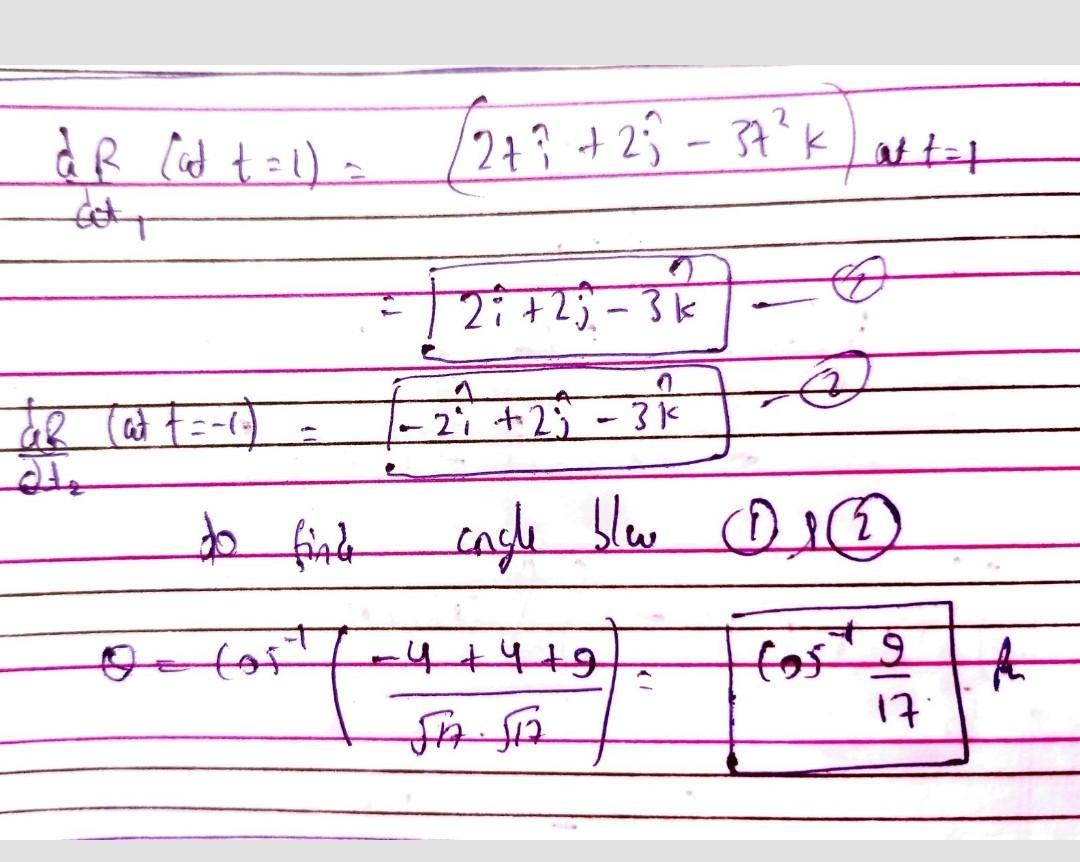 dR/dt₁ (at t=1) = (2t î + 2ĵ - 3t² k) at t=1
= 2î + 2ĵ - 3k̂ — ①
dR/dt₂ (at t=-1) = -2î + 2ĵ - 3k̂ - ②
to find angle b/w ① & ②
θ = cos⁻¹ ( -4 + 4 + 9 / √17 . √17 ) = cos⁻¹ 9/17